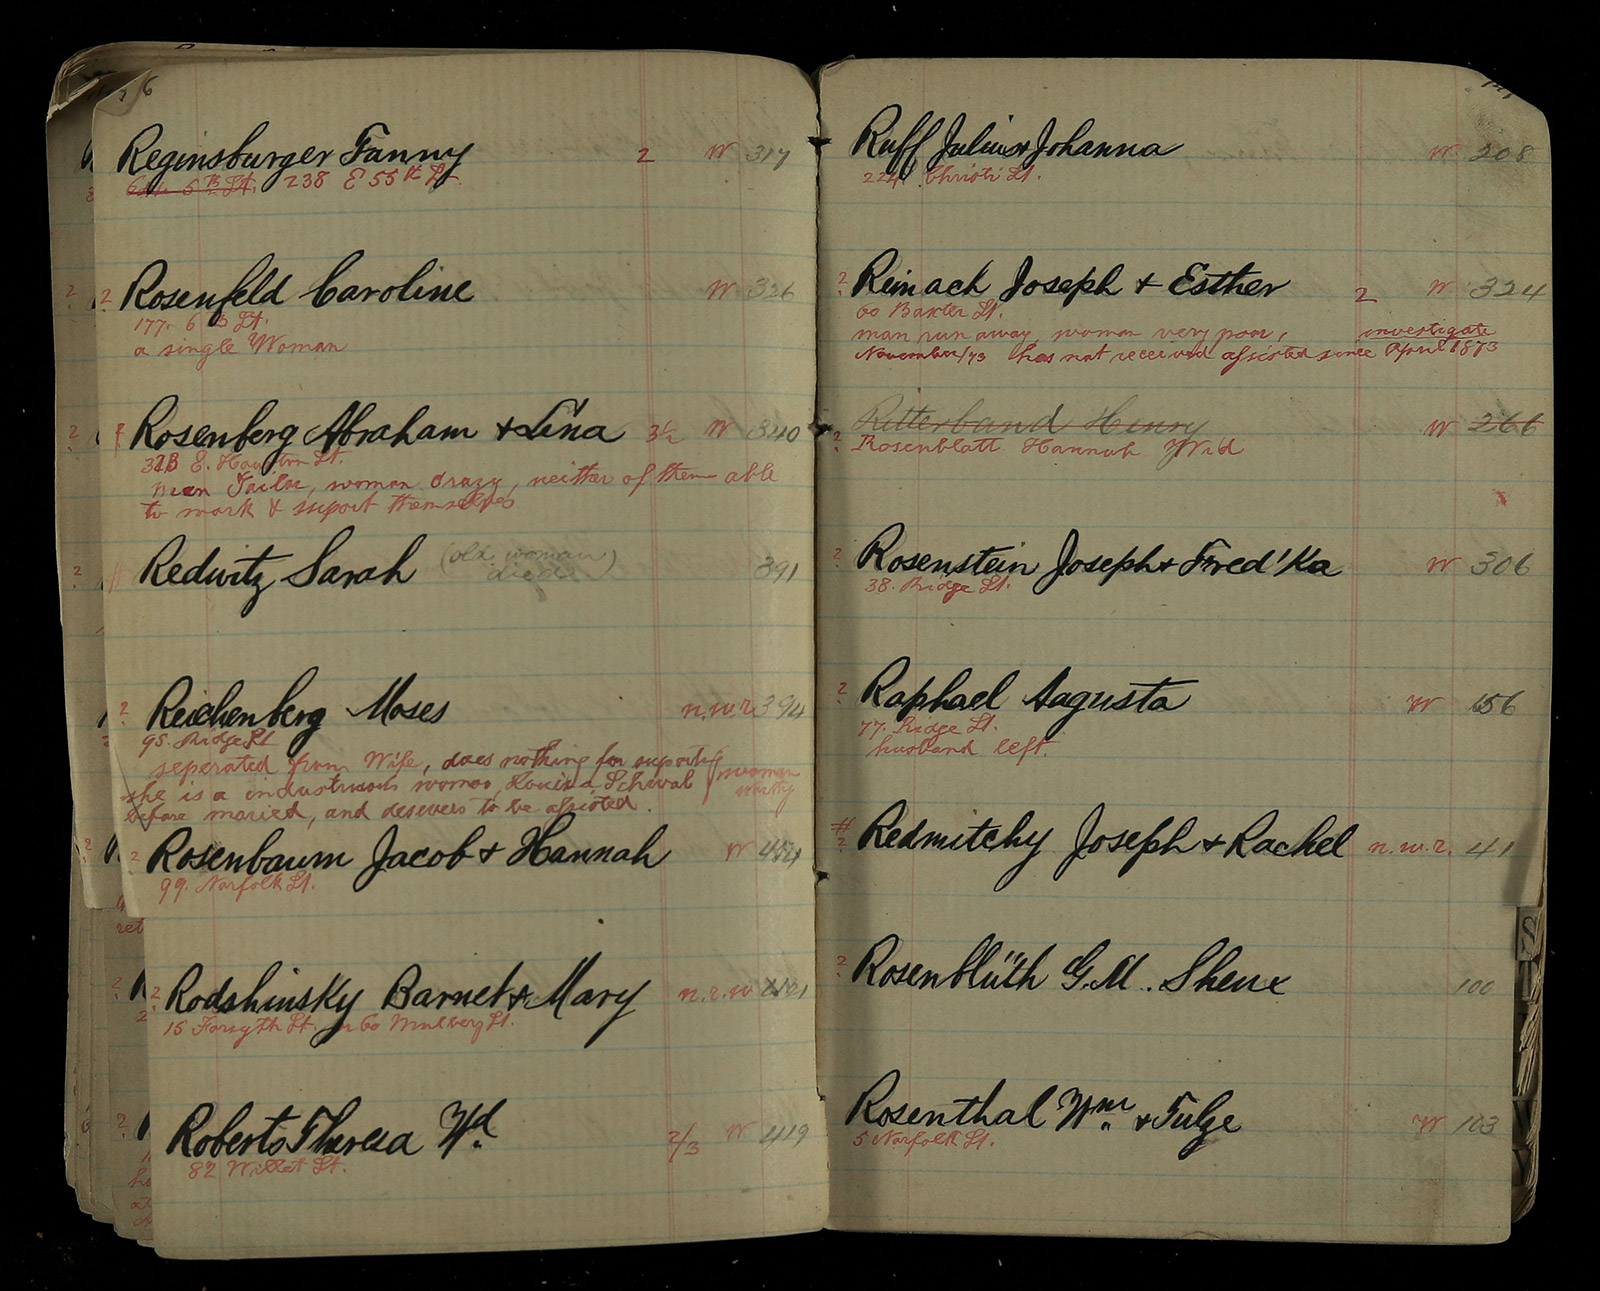 6
Reginsburger Fanny 2 W 317
5th St. 238 E 55th St.
Rosenfeld Caroline W 326
2
177. 6th St.
a single Woman
Rosenberg Abraham + Lina 3½ W 340
E. Houston St.
Man Tailor, woman crazy, neither of them able
to work & suport themselfes
Redwitz Sarah (old woman 391
died)
Reichenberg Moses n.w.r. 394
2
95. Ridge St
seperated from Wife, does nothing for suporting
she is a industrious woman, Louisa Schwal woman
before maried, and desevers to be assisted. worthy
Rosenbaum Jacob + Hannah W
2
99. Norfolk St.
Rodshinsky Barnet + Mary n.r.w
2
15 Forsyth St. or 60 Mulbery St.
Roberts Theresa Wd. 2/3 W 419
82 Willet St.
Ruff Julius + Johanna W 208
224 Christi St.
2 Reinach Joseph + Esther 2 W 324
60 Baxter St.
man run away, woman very poor, investigate
November/73 has not received assisted since April 1873
Ritterband Henry W 266
2 Rosenblatt Hannah Wid
2 Rosenstein Joseph + Fred'Ka W 306
38. Ridge St.
2 Raphael Augusta W 156
77. Ridge St.
husband left
# Redmitchy Joseph + Rachel n.w.r. 41
2
2 Rosenblüth G.M. 100
Rosenthal Wm. + Tulze W 103
5 Norfolk St.
S
T
W
Y